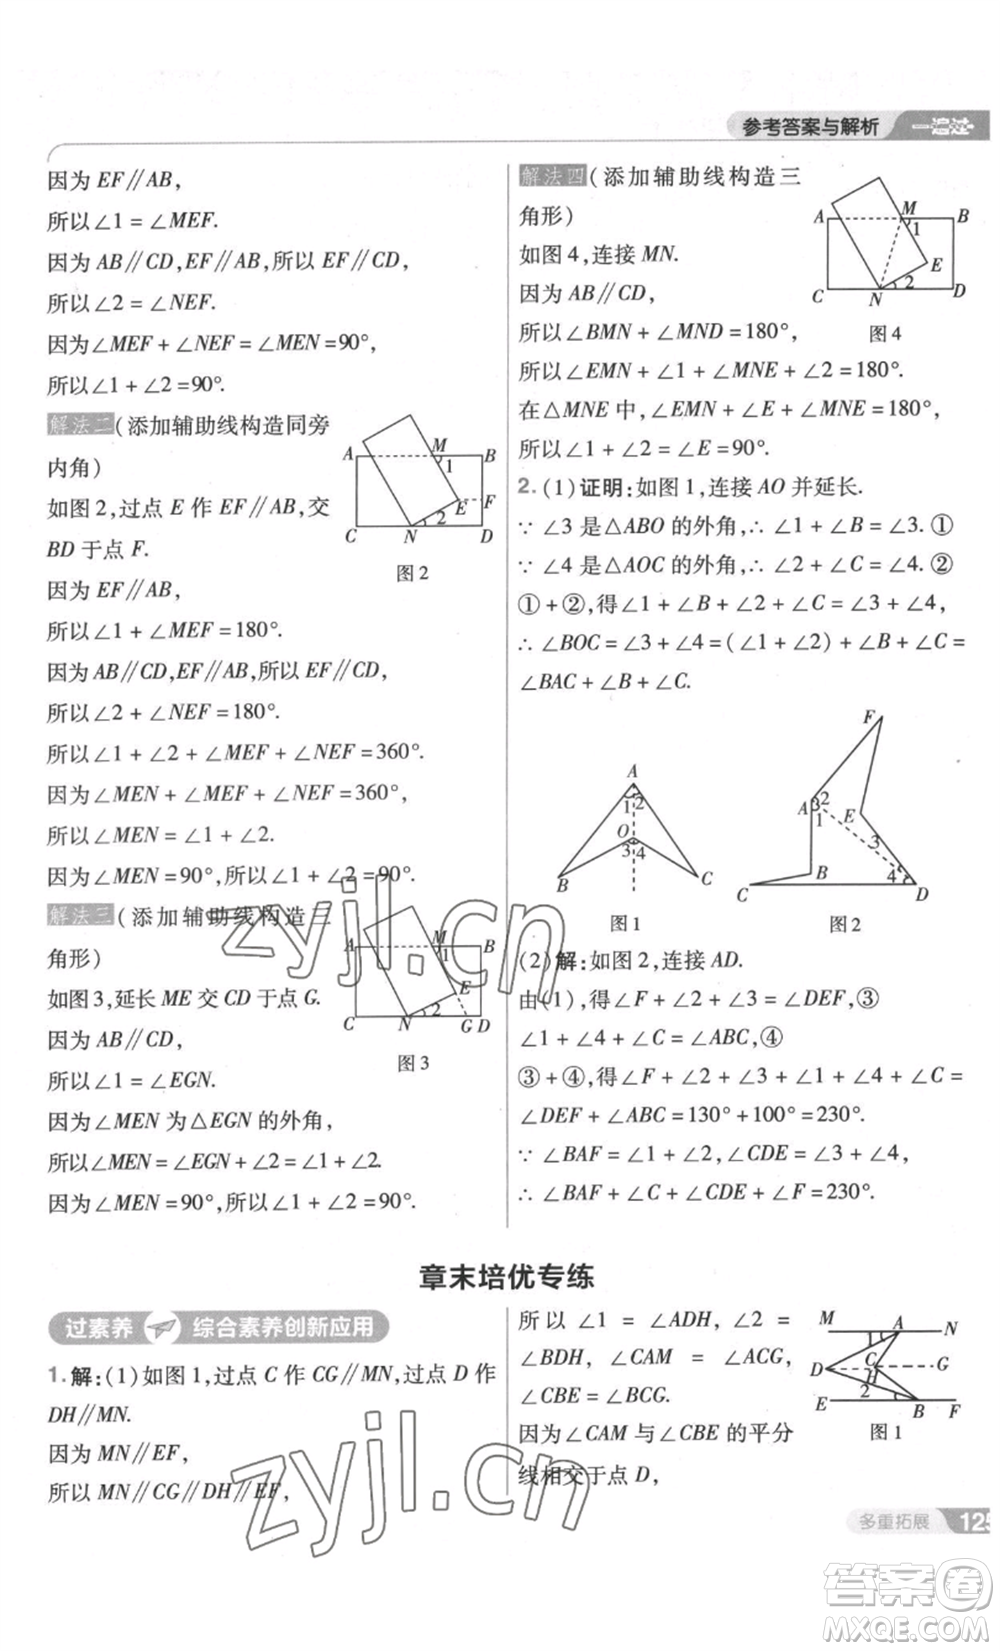 参考答案与解析 一遍过
因为 EF∥AB,
所以∠1 = ∠MEF.
因为 AB∥CD,EF∥AB,所以 EF∥CD,
所以∠2 = ∠NEF.
因为∠MEF + ∠NEF = ∠MEN = 90°,
所以∠1 + ∠2 = 90°.
解法二(添加辅助线构造同旁
内角)
如图 2,过点 E 作 EF∥AB,交
BD 于点 F.
A M B 1 E F 2 C N D
图 2
因为 EF∥AB,
所以∠1 + ∠MEF = 180°.
因为 AB∥CD,EF∥AB,所以 EF∥CD,
所以∠2 + ∠NEF = 180°.
所以∠1 + ∠2 + ∠MEF + ∠NEF = 360°.
因为∠MEN + ∠MEF + ∠NEF = 360°,
所以∠MEN = ∠1 + ∠2.
因为∠MEN = 90°,所以∠1 + ∠2 = 90°.
解法三(添加辅助线构造三
角形)
如图 3,延长 ME 交 CD 于点 G.
A M B 1 E 2 C N G D
图 3
因为 AB∥CD,
所以∠1 = ∠EGN.
因为∠MEN 为△EGN 的外角,
所以∠MEN = ∠EGN + ∠2 = ∠1 + ∠2.
因为∠MEN = 90°,所以∠1 + ∠2 = 90°.
解法四(添加辅助线构造三
角形)
如图 4,连接 MN.
A M B 1 E 2 C N D
图 4
因为 AB∥CD,
所以∠BMN + ∠MND = 180°,
所以∠EMN + ∠1 + ∠MNE + ∠2 = 180°.
在△MNE 中,∠EMN + ∠E + ∠MNE = 180°,
所以∠1 + ∠2 = ∠E = 90°.
2. (1)证明:如图 1,连接 AO 并延长.
∵ ∠3 是△ABO 的外角,∴ ∠1 + ∠B = ∠3. ①
∵ ∠4 是△AOC 的外角,∴ ∠2 + ∠C = ∠4. ②
① + ②,得∠1 + ∠B + ∠2 + ∠C = ∠3 + ∠4,
∴ ∠BOC = ∠3 + ∠4 = (∠1 + ∠2) + ∠B + ∠C =
∠BAC + ∠B + ∠C.
A 1 2 O 3 4 B C
图 1
F A 3 2 1 E 3 4 B C D
图 2
(2)解:如图 2,连接 AD.
由(1),得∠F + ∠2 + ∠3 = ∠DEF,③
∠1 + ∠4 + ∠C = ∠ABC,④
③ + ④,得∠F + ∠2 + ∠3 + ∠1 + ∠4 + ∠C =
∠DEF + ∠ABC = 130° + 100° = 230°.
∵ ∠BAF = ∠1 + ∠2,∠CDE = ∠3 + ∠4,
∴ ∠BAF + ∠C + ∠CDE + ∠F = 230°.
章末培优专练
过素养 综合素养创新应用
1. 解:(1)如图 1,过点 C 作 CG∥MN,过点 D 作
DH∥MN.
因为 MN∥EF,
所以 MN∥CG∥DH∥EF,
所以 ∠1 = ∠ADH,∠2 =
∠BDH,∠CAM = ∠ACG,
∠CBE = ∠BCG.
因为∠CAM 与∠CBE 的平分
线相交于点 D,
M A N 1 D C G H 2 E B F
图 1
多重拓展 125
zyjl.cn
zyjl.cn
答案圈
MXQE.COM